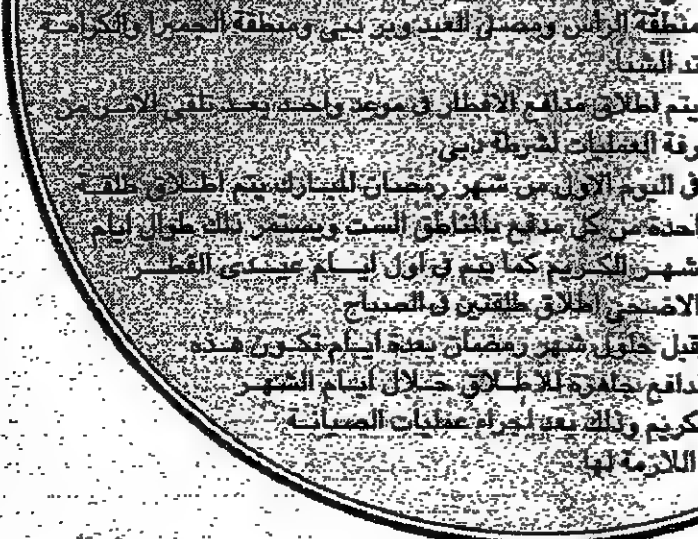 منطقة الراس ومصلى العيد وبر دبي ومنطقة الحمرا والكرامة
ند الشبا
يتم اطلاق مدافع الافطار في موعد واحد بعد تلقى الامر من
رفة العمليات لشرطة دبي
في اليوم الاول من شهر رمضان المبارك يتم اطلاق طلقة
احدة من كل مدفع بالمناطق الست ويستمر ذلك طوال ايام
شهر الكريم كما يتم في اول ايام عيدى الفطر
الاضحى اطلاق طلقتين في الصباح
قبل حلول شهر رمضان بعدة ايام تكون هذه
دافع جاهزة للاطلاق خلال ايام الشهر
كريم وذلك بعد اجراء عمليات الصيانة
اللازمة لها